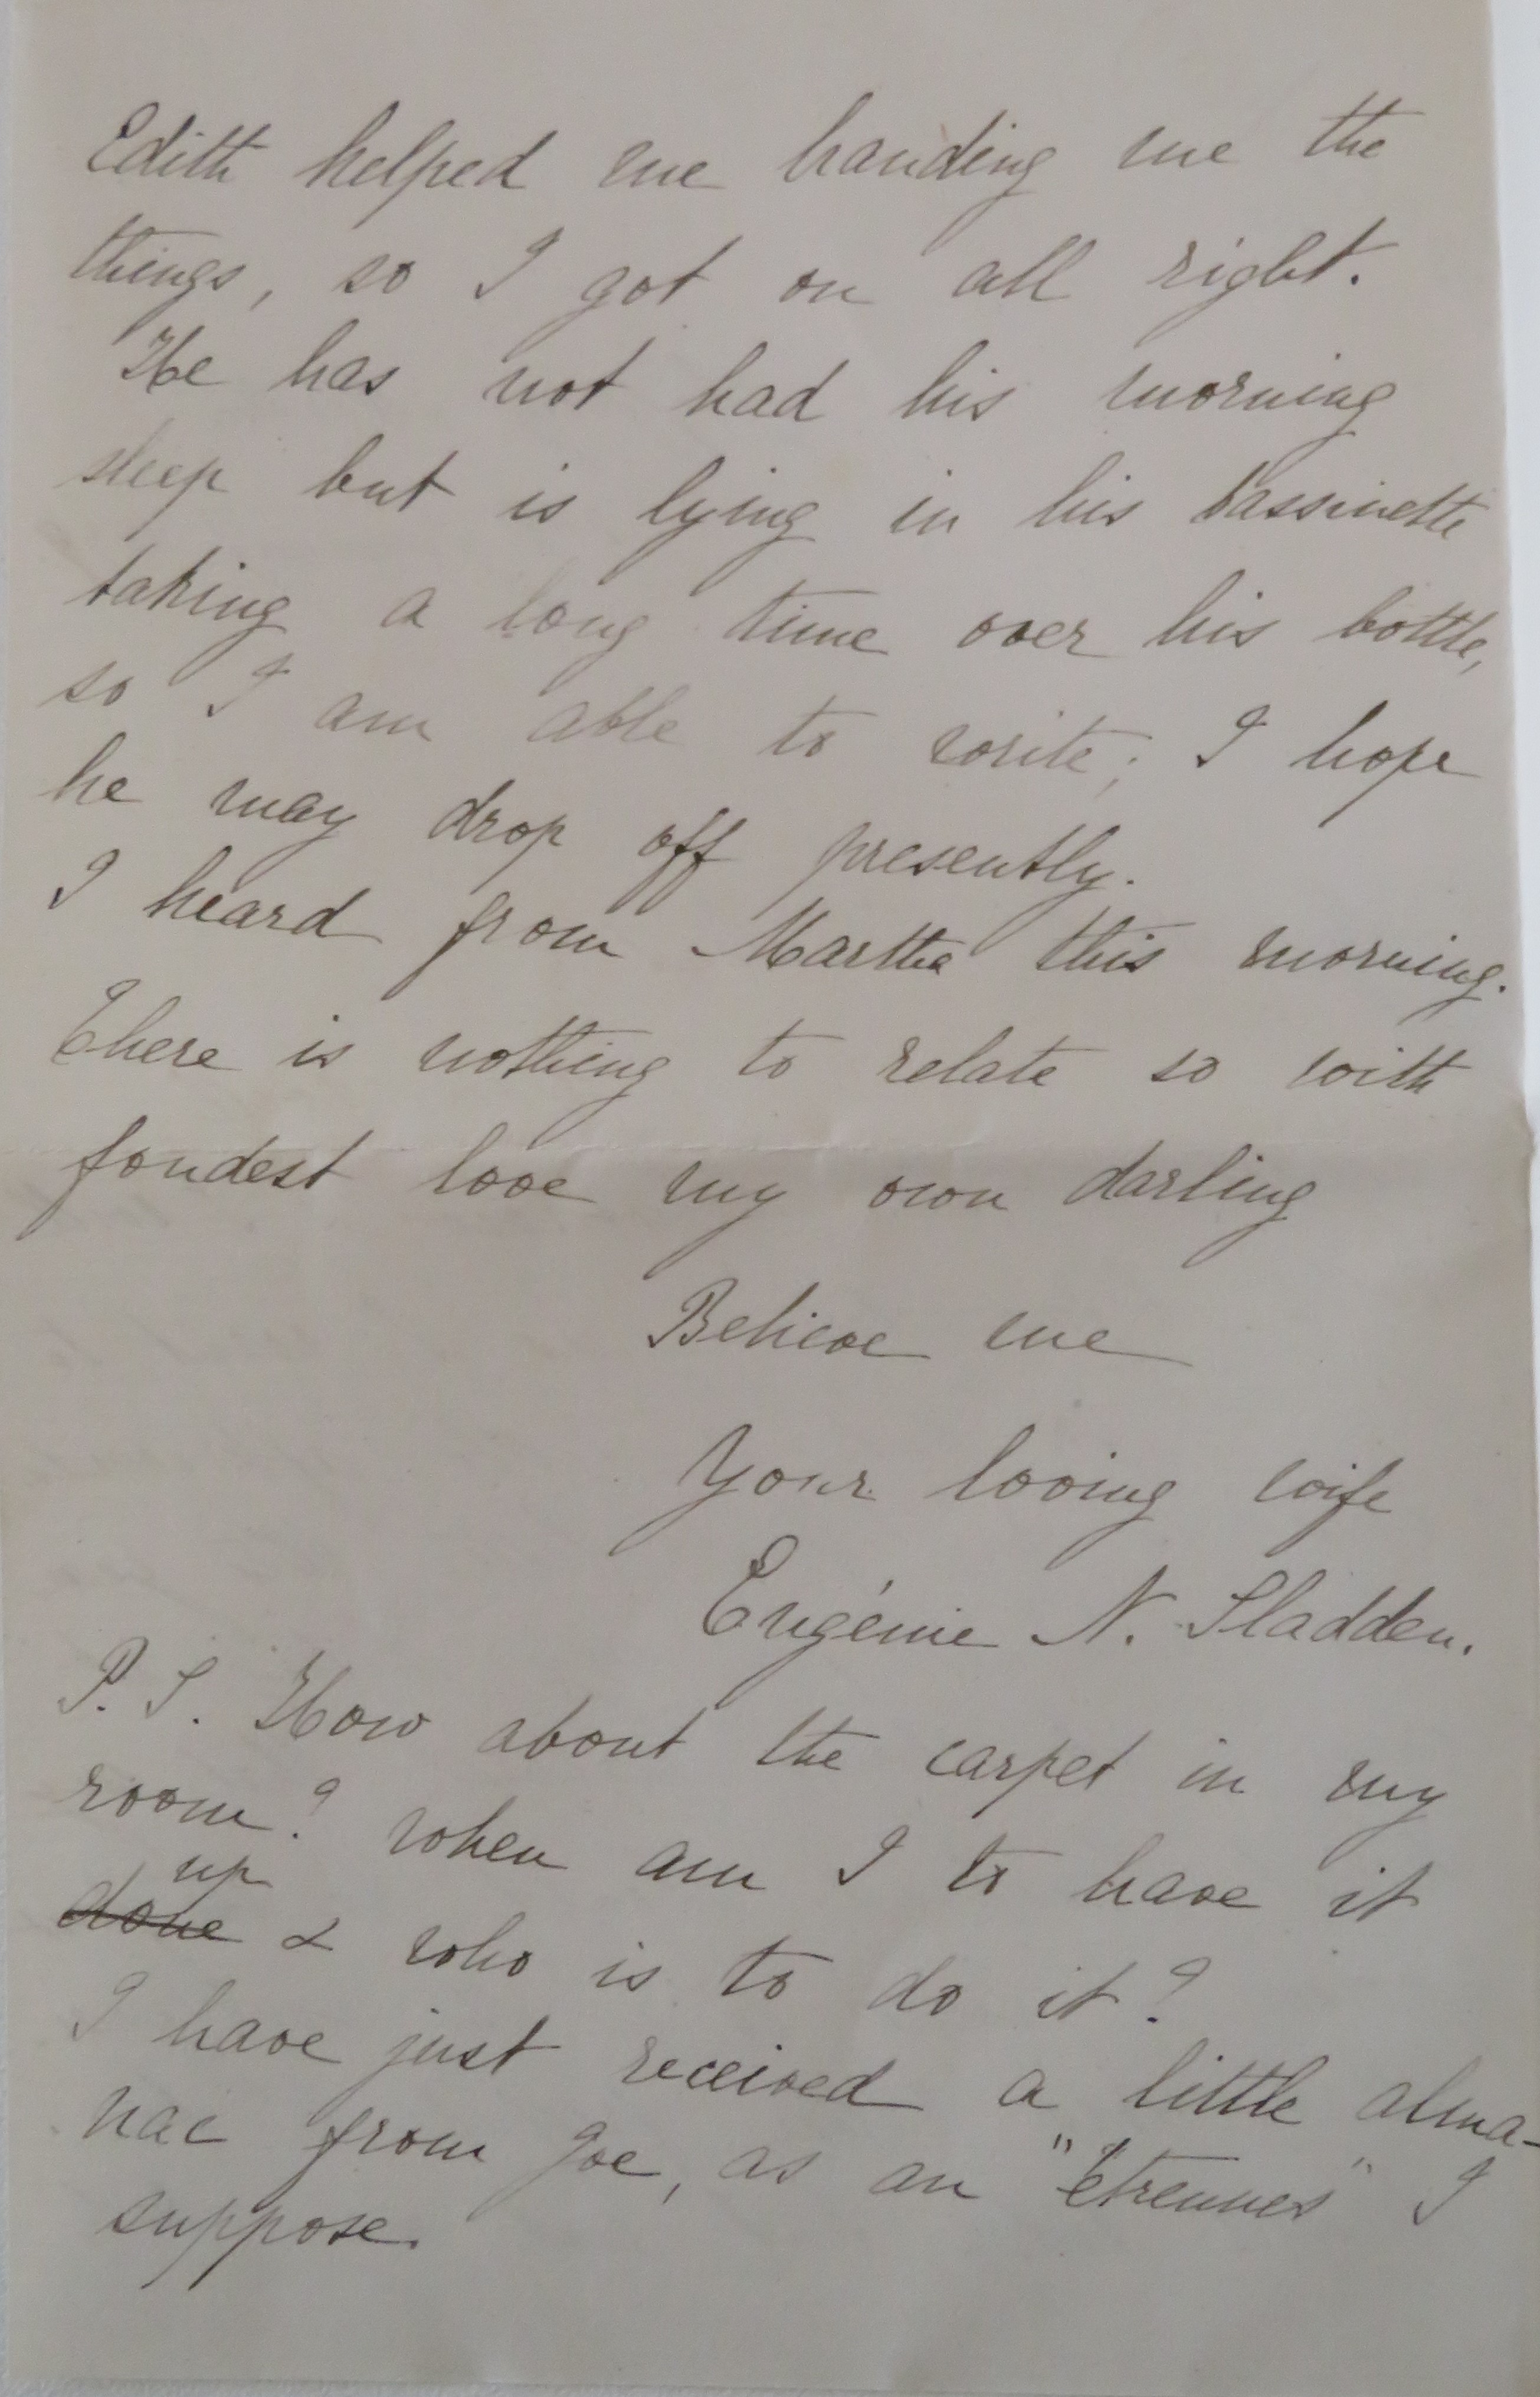 Edith helped me handing me the
things, so I got on all right.
He has not had his morning
sleep but is lying in his bassinette
taking a long time over his bottle,
so I am able to write; I hope
he may drop off presently.
I heard from Martha this morning.
There is nothing to relate so with
fondest love my own darling
Believe me
Your loving wife
Eugénie N. Sladden.
P. S. How about the carpet in my
room? When am I to have it
up
done & who is to do it?
I have just received a little alma-
nac from Joe, as an "étrennes" I
suppose.